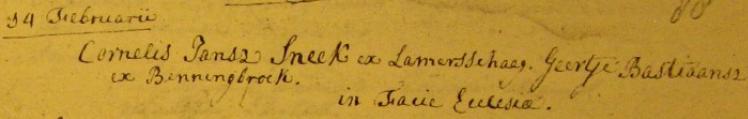 14 Februarii
Cornelis Jansz Sneek ex Lamersschaeg. Geertje Bastiaansz
ex Benningbroek.
in Facie Ecclesiæ.